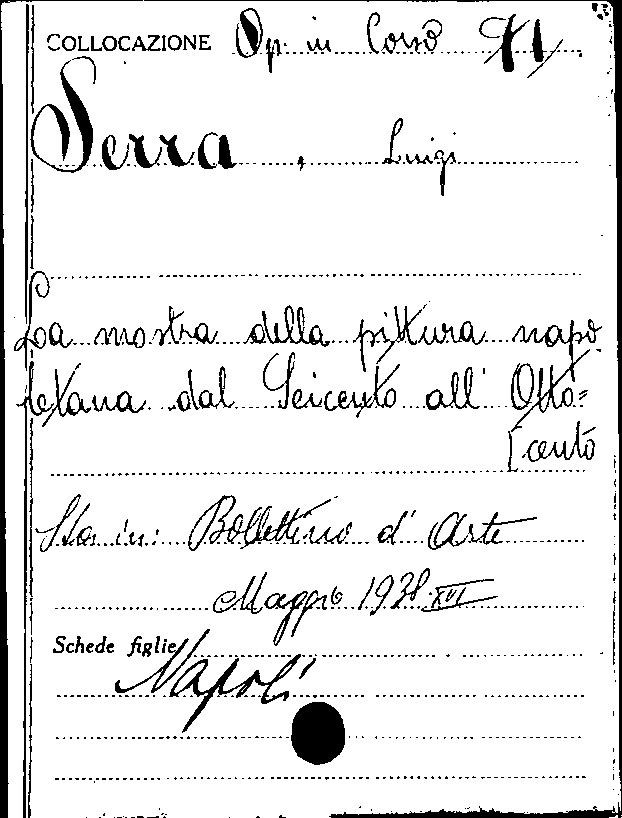 COLLOCAZIONE Op. in Corso 71.
Serra, Luigi
La mostra della pittura napo
letana dal Seicento all' Otto=
[cento
Sta in: Bollettino d' Arte
Maggio 1938-XVI
Schede figlie
Napoli